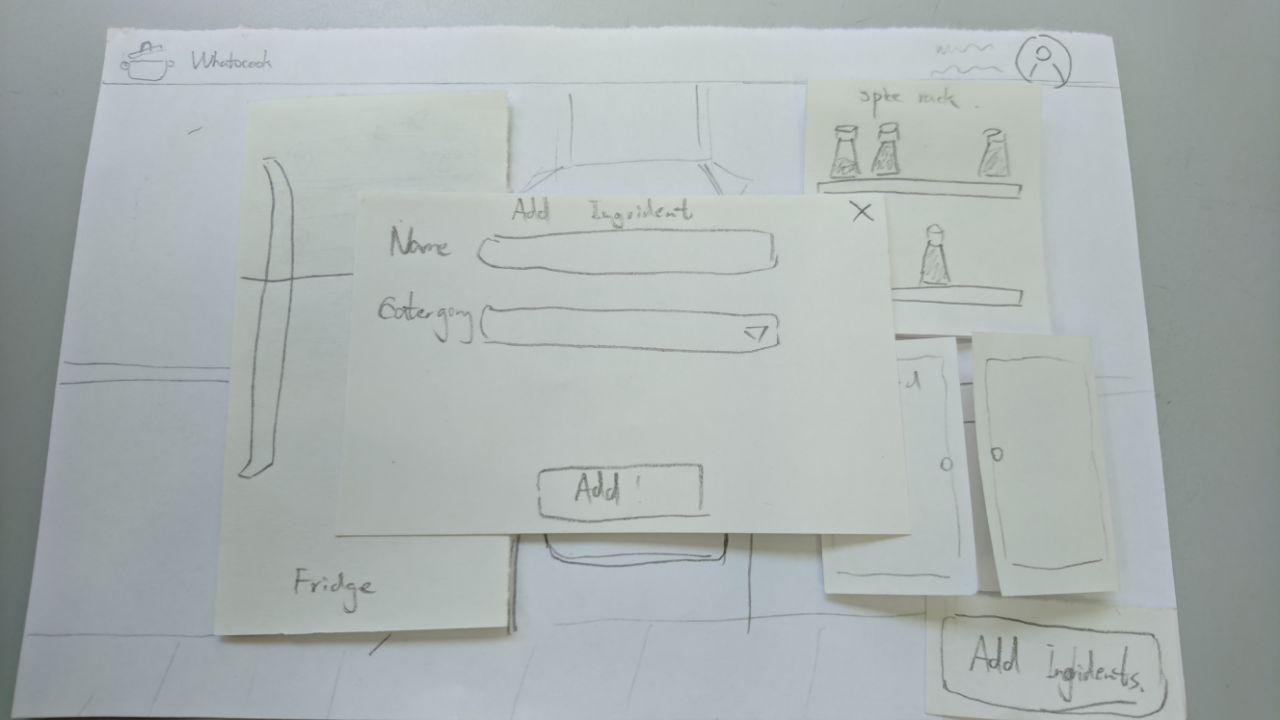 Whatocook
spte rack.
Add Ingrident
Name
Catergory
Add!
Fridge
Add Ingridents.